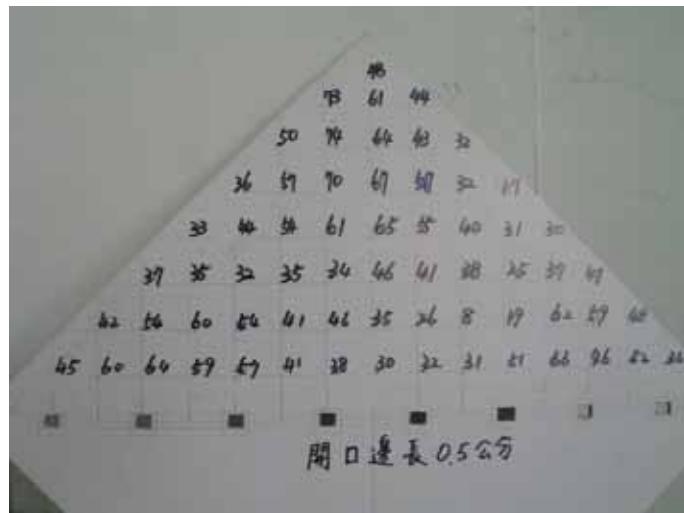 48
73 61 44
50 74 64 43 32
36 57 70 67 57 32 17
33 44 54 61 65 55 40 31 30
37 35 32 35 34 46 41 38 25 39 47
42 56 60 54 41 46 35 26 8 19 62 59 40
45 60 64 59 57 41 38 30 32 31 51 66 96 52 36
開口邊長0.5公分